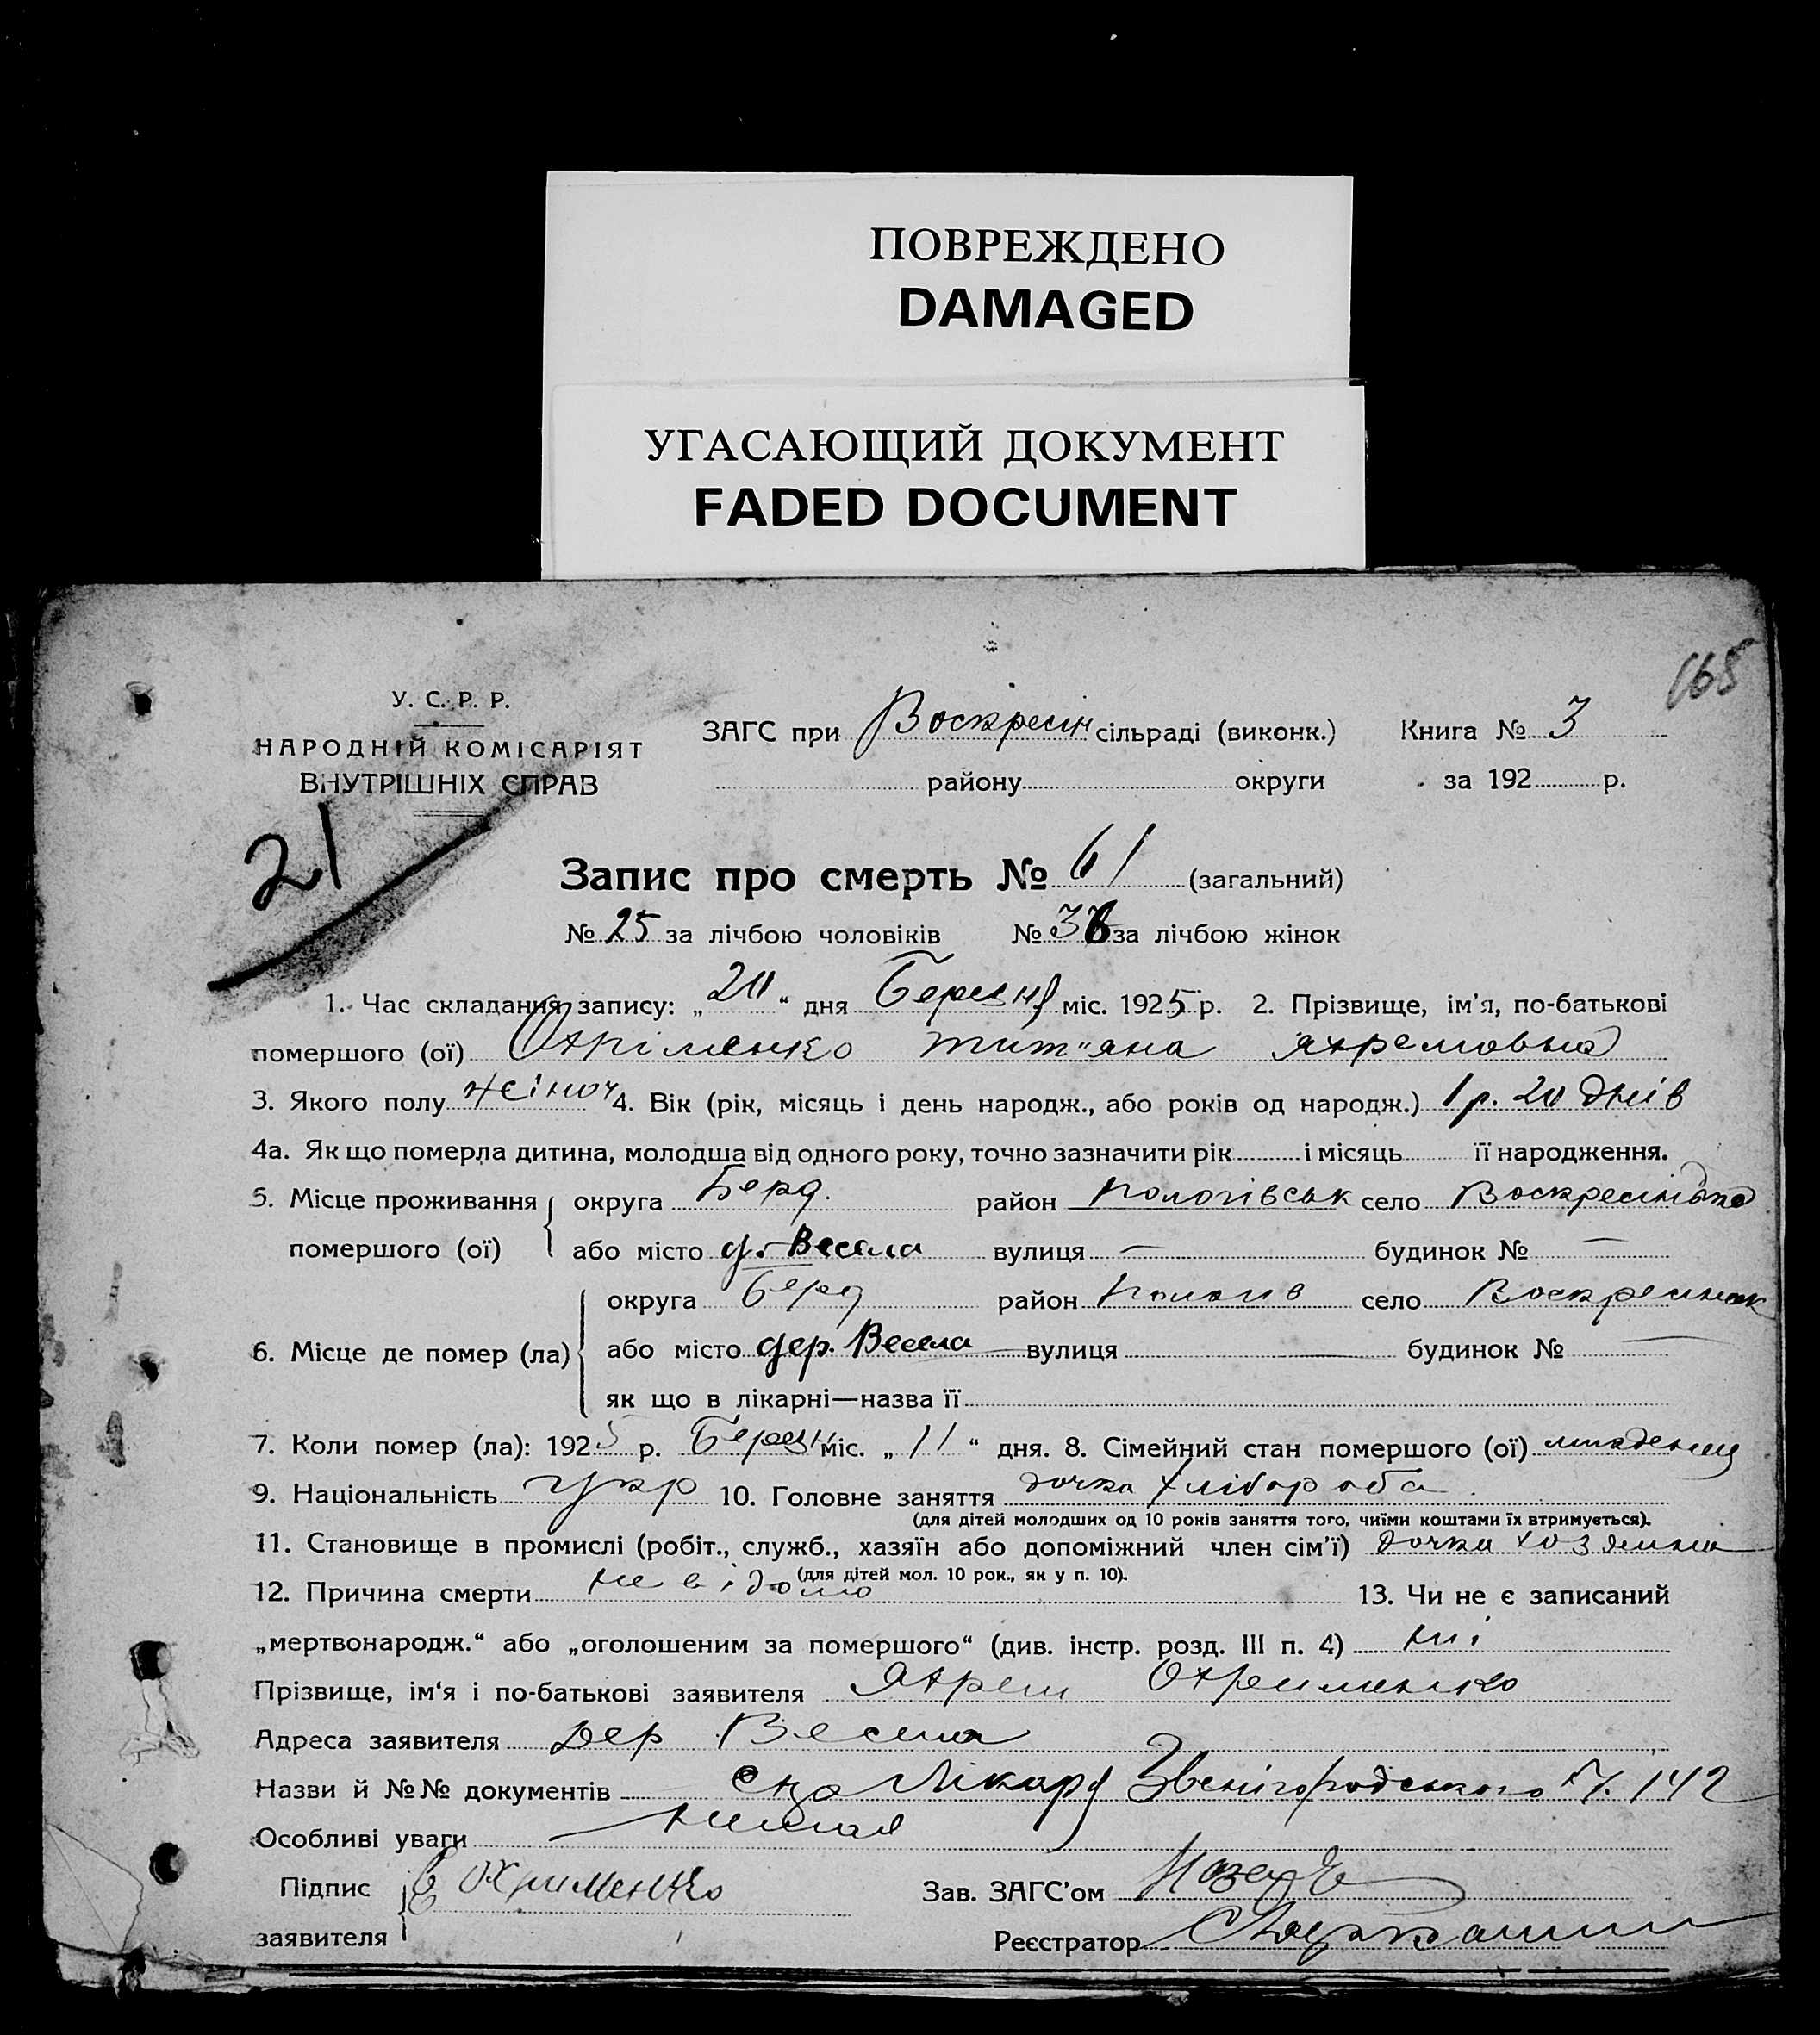 ПОВРЕЖДЕНО
DAMAGED
УГАСАЮЩИЙ ДОКУМЕНТ
FADED DOCUMENT
165
У. С. Р. Р.
НАРОДНІЙ КОМІСАРІЯТ
ВНУТРІШНІХ СПРАВ
ЗАГС при Воскресін сільраді (виконк.) Книга № 3
району округи за 192 р.
21
Запис про смерть № 61 (загальний)
№ 25 за лічбою чоловіків № 36 за лічбою жінок
1. Час складання запису: „20“ дня Березня міс. 1925 р. 2. Прізвище, ім'я, по-батькові
помершого (ої) Охріменко Тит"яна Яхремовна
3. Якого полу жіноч 4. Вік (рік, місяць і день народж., або років од народж.) 1 р. 20 днів
4а. Як що померла дитина, молодша від одного року, точно зазначити рік і місяць її народження.
5. Місце проживання помершого (ої) округа Берд. район Пологівськ село Воскресінівка
або місто д. Весела вулиця — будинок № —
6. Місце де помер (ла) округа Берд район Пологів село Воскресинськ
або місто дер. Весела вулиця — будинок № —
як що в лікарні—назва її
7. Коли помер (ла): 1925 р. Березн міс. „11“ дня. 8. Сімейний стан помершого (ої) младенец
9. Національність Укр 10. Головне заняття дочка хлібороба
(для дітей молодших од 10 років заняття того, чиїми коштами їх втримується).
11. Становище в промислі (робіт., служб., хазяїн або допоміжний член сім'ї) дочка хозяина
(для дітей мол. 10 рок., як у п. 10).
12. Причина смерти невідомо 13. Чи не є записаний
„мертвонародж.“ або „оголошеним за помершого“ (див. інстр. розд. III п. 4) ні
Прізвище, ім'я і по-батькові заявителя Яхрем Охрименко
Адреса заявителя дер Весела
Назви й №№ документів Лікаря Звенігородського 142
Особливі уваги немає
Підпис заявителя Е Охрименко Зав. ЗАГС'ом
Реєстратор